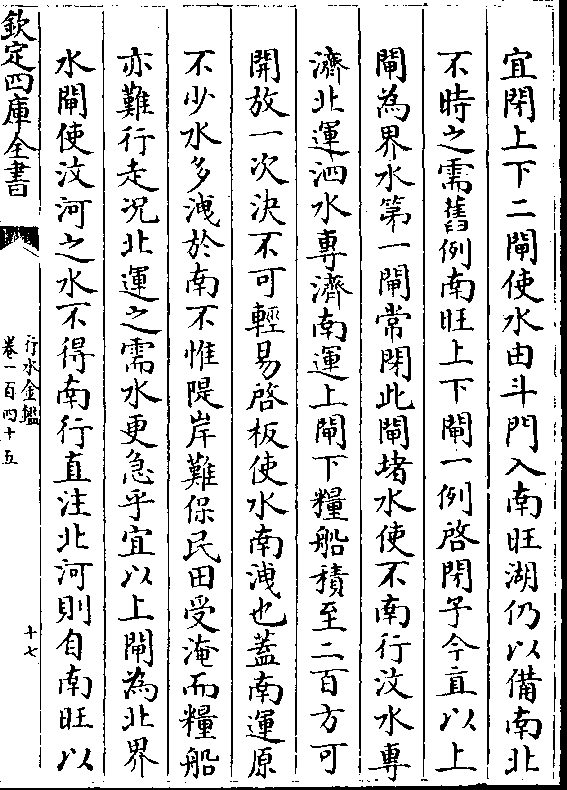 宜閉上下二閘使水由斗門入南旺湖仍以備南北
不時之需舊例南旺上下閘一例啓閉予今直以上
閘為界水第一閘常閉此閘堵水使不南行汶水專
濟北運泗水專濟南運上閘下糧船積至二百方可
開放一次決不可輕易啓板使水南洩也蓋南運原
不少水多洩於南不惟隄岸難保民田受淹而糧船
亦難行走况北運之需水更急乎宜以上閘為北界
水閘使汶河之水不得南行直注北河則自南旺以
欽定四庫全書
行水金鑑
卷一百四十五
十七